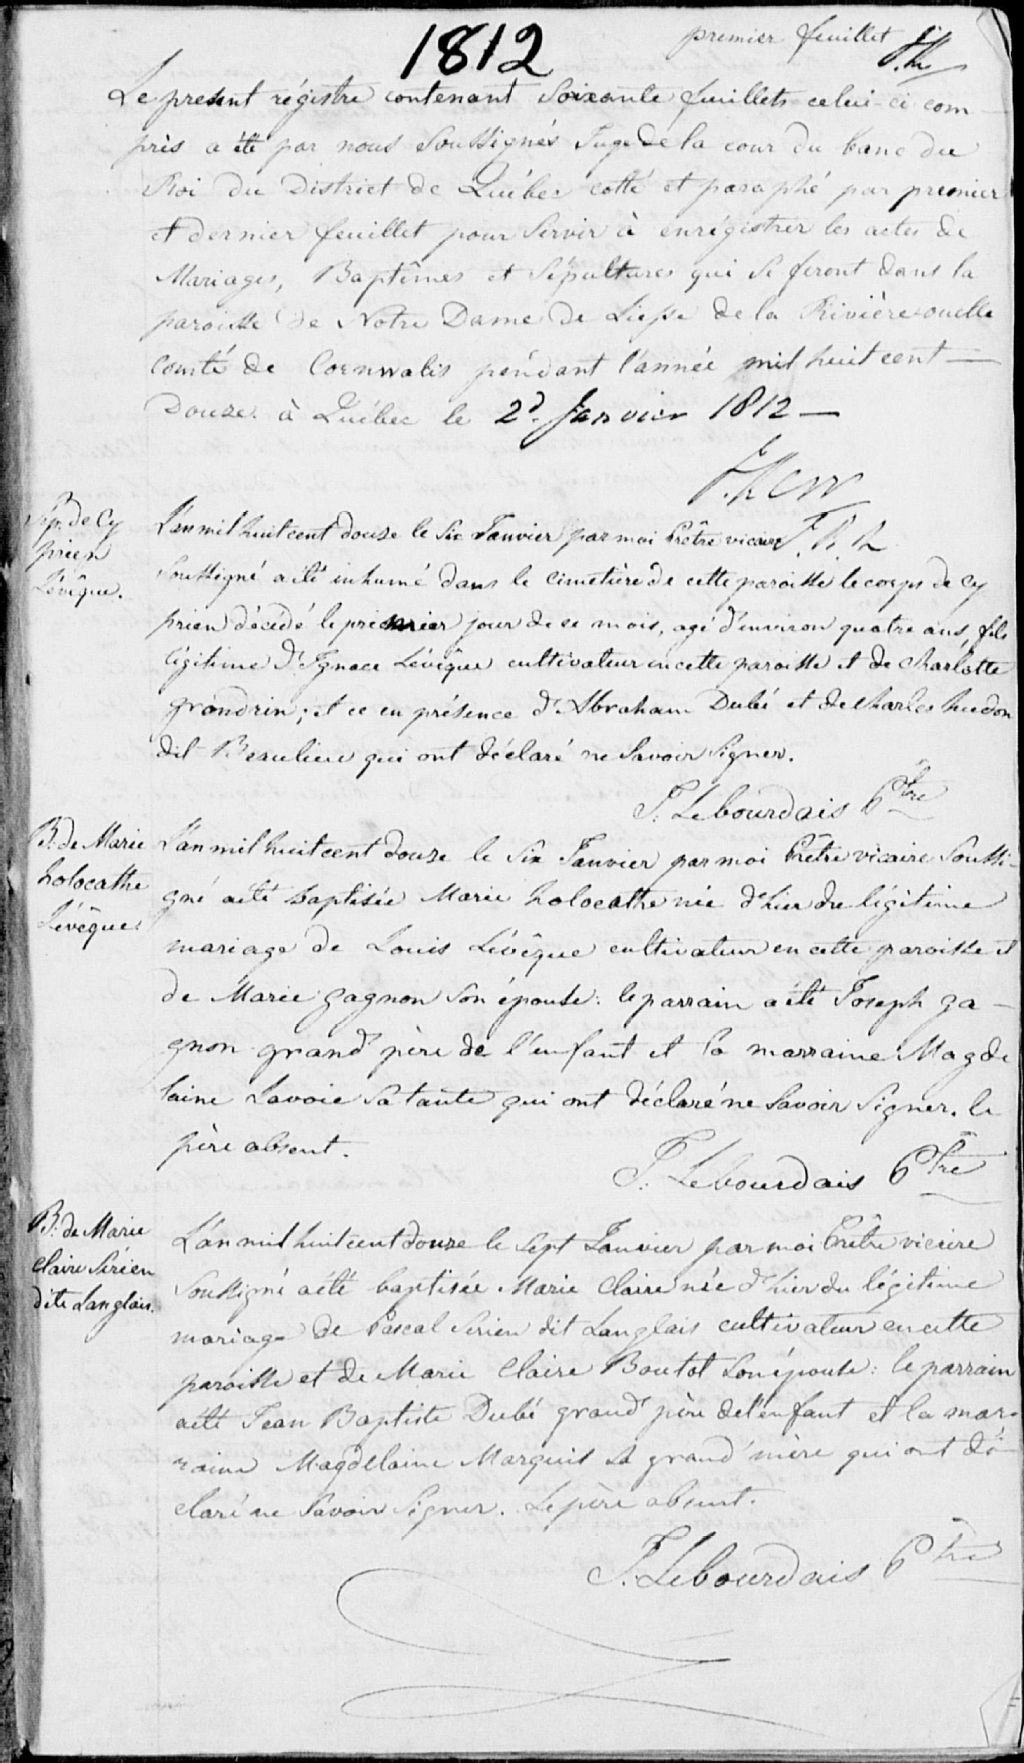 premier feuillet
1812
Le present régistre contenant Soixante feuillets celui-ci com
pris a été par nous Soussignés Juge de la cour du banc du
Roi du District de Québec cotté et paraphé par premier
et dernier feuillet pour Servir à enrégistrer les actes de
Mariages, Baptêmes et Sépultures qui Se feront dans la
paroisse de Notre Dame de Liesse de la Rivière ouelle
Comté de Cornwalis pendant l'année mil huit cent —
Douze. à Québec le 2d. Janvier 1812 —
J. Kerr
Sep. de Cy
prien
Lévêque.
L'an mil huit cent douze le Six Janvier par moi Prêtre vicaire
Soussigné a été inhumé dans le cimetière de cette paroisse le corps de Cy
prien décédé le premier jour de ce mois, agé d'environ quatre ans, fils
légitime d'Ignace Lévêque cultivateur en cette paroisse et de Charlotte
grondrin; et ce en présence d'Abraham Dubé et de charles hudon
dit Beaulieu qui ont déclaré ne Savoir Signer.
J. Lebourdais Ptre
B. de Marie
holocathe
Lévêque.
L'an mil huit cent douze le Six Janvier par moi Prêtre vicaire Soussi-
gné a été baptisée Marie holocathe née d'hier du légitime
mariage de Louis Lévêque cultivateur en cette paroisse et
de Marie gagnon Son épouse: le parrain a été Joseph ga-
gnon grand père de l'enfant et la marraine Magde
laine Savoie Sa tante qui ont déclaré ne Savoir Signer. le
père absent.
J. Lebourdais Ptre
B. de Marie
claire Sérien
dite Langlais.
L'an mil huit cent douze le Sept Janvier par moi Prêtre vicaire
Soussigné a été baptisée Marie Claire née d'hier du légitime
mariage de Pascal Serien dit Langlais cultivateur en cette
paroisse et de Marie Claire Boutot Son épouse: le parrain
a été Jean Baptiste Dubé grand père de l'enfant et la mar-
raine Magdelaine Marquis Sa grand'mère qui ont dé-
claré ne Savoir Signer. Le père absent.
J. Lebourdais Ptre